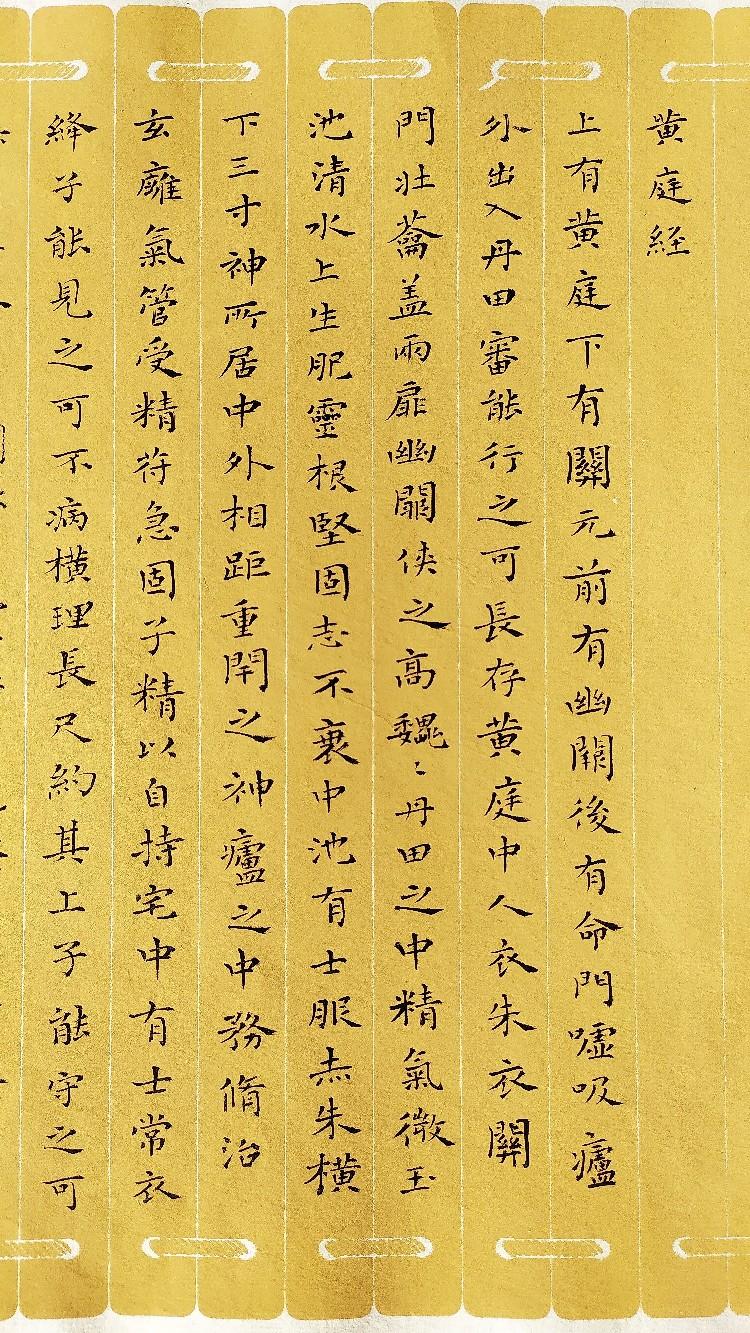 黄庭經
上有黄庭下有關元前有幽關後有命門噓吸廬
外出入丹田審能行之可長存黄庭中人衣朱衣關
門壮蘥盖兩扉幽闗俠之高巍〻丹田之中精氣微玉
池清水上生肥靈根堅固志不衰中池有士服赤朱横
下三寸神所居中外相距重閇之神廬之中務脩治
玄廱氣管受精苻急固子精以自持宅中有士常衣
絳子能見之可不病横理長尺約其上子能守之可